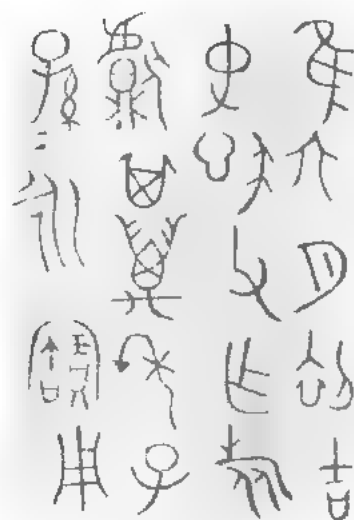 隹六月初吉
史父乍旅
獻其萬年子
孫=永寶用